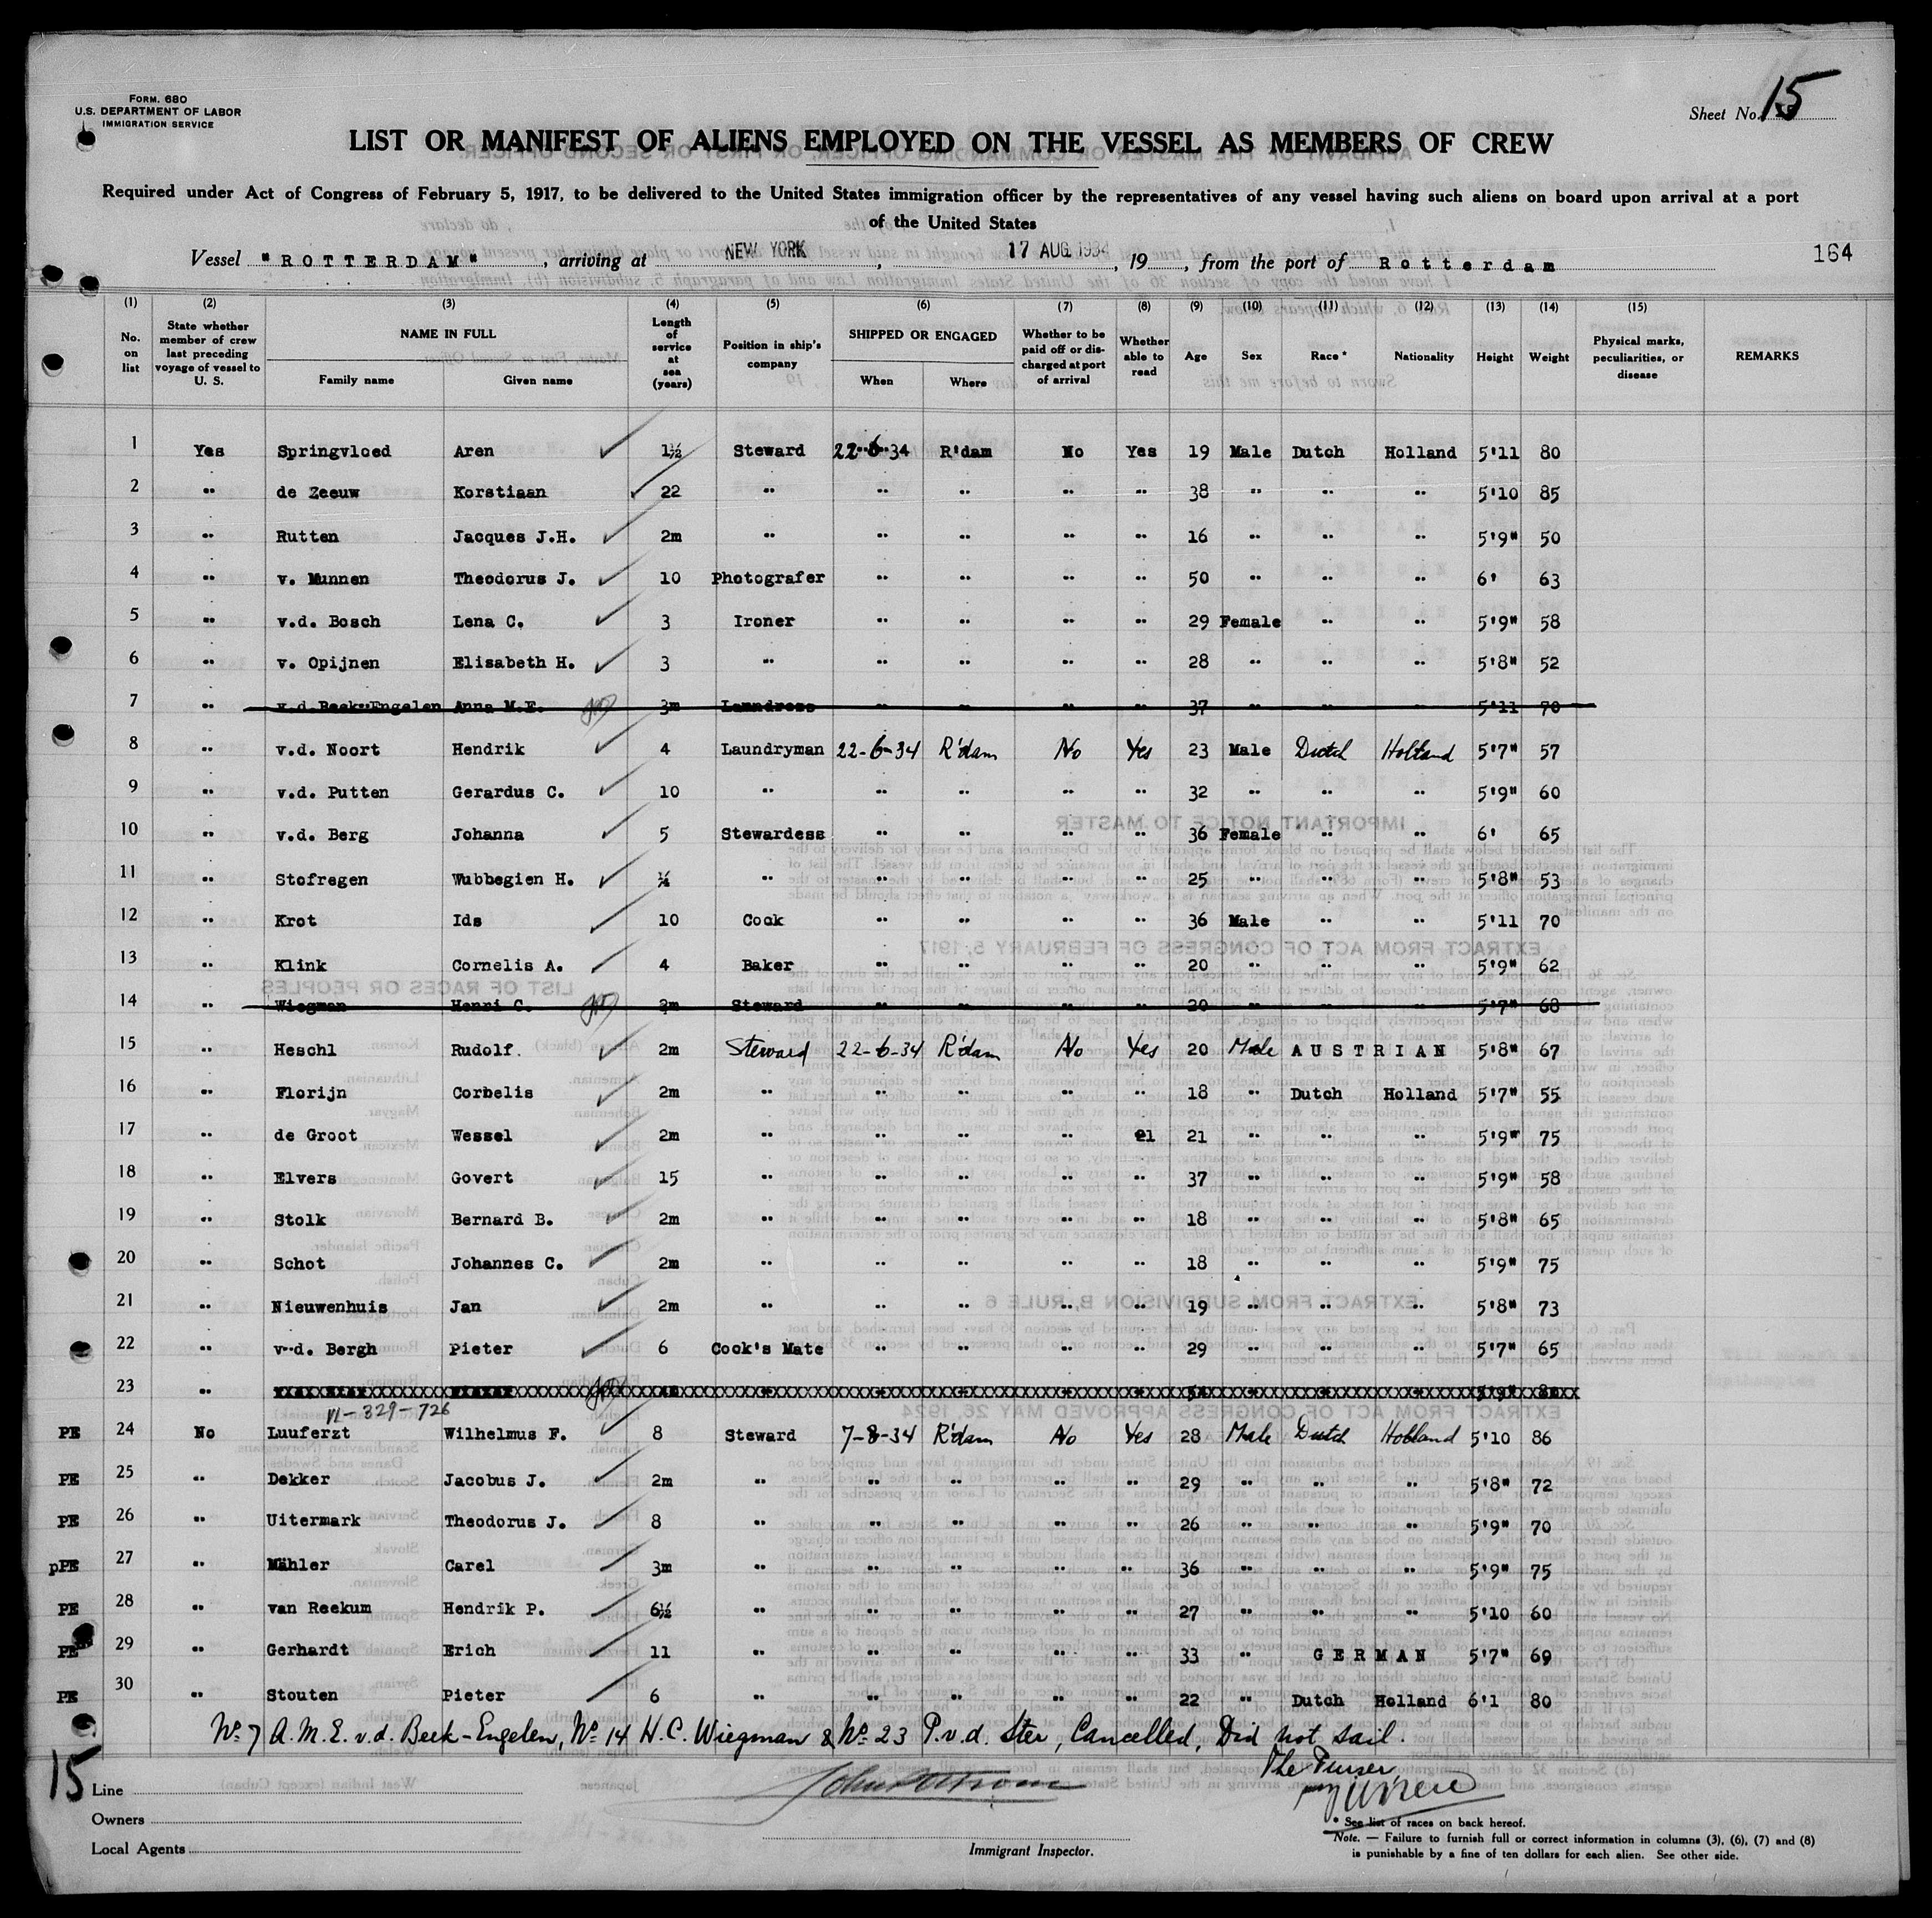 FORM. 680
U.S. DEPARTMENT OF LABOR
IMMIGRATION SERVICE
Sheet No. 15
LIST OR MANIFEST OF ALIENS EMPLOYED ON THE VESSEL AS MEMBERS OF CREW
Required under Act of Congress of February 5, 1917, to be delivered to the United States immigration officer by the representatives of any vessel having such aliens on board upon arrival at a port
of the United States
Vessel "ROTTERDAM", arriving at NEW YORK, 17 AUG 1934, 19, from the port of Rotterdam 164
(1) (2) (3) (4) (5) (6) (7) (8) (9) (10) (11) (12) (13) (14) (15)
No. on list State whether member of crew last preceding voyage of vessel to U. S. NAME IN FULL Family name Given name Length of service at sea (years) Position in ship's company SHIPPED OR ENGAGED When Where Whether to be paid off or discharged at port of arrival Whether able to read Age Sex Race* Nationality Height Weight Physical marks, peculiarities, or disease REMARKS
1 Yes Springvloed Aren 1½ Steward 22-6-34 R'dam No Yes 19 Male Dutch Holland 5'11 80
2 " de Zeeuw Korstiaan 22 " " " " " 38 " " " 5'10 85
3 " Rutten Jacques J.H. 2m " " " " " 16 " " " 5'9" 50
4 " v. Munnen Theodorus J. 10 Photografer " " " " 50 " " " 6' 63
5 " v.d. Bosch Lena C. 3 Ironer " " " " 29 Female " " 5'9" 58
6 " v. Opijnen Elisabeth H. 3 " " " " " 28 " " " 5'8" 52
7 " v.d. Beek-Engelen Anna M.E. 3m Laundress " " " " 37 " " " 5'11 70
8 " v.d. Noort Hendrik 4 Laundryman 22-6-34 R'dam No Yes 23 Male Dutch Holland 5'7" 57
9 " v.d. Putten Gerardus C. 10 " " " " " 32 " " " 5'9" 60
10 " v.d. Berg Johanna 5 Stewardess " " " " 36 Female " " 6' 65
11 " Stofregen Wubbegien H. " " " " " 25 " " " 5'8" 53
12 " Krot Ids 10 Cook " " " " 36 Male " " 5'11 70
13 " Klink Cornelis A. 4 Baker " " " " 20 " " " 5'9" 62
14 " Wiegman Henri C. 2m Steward " " " " 20 " " " 5'7" 68
15 " Heschl Rudolf. 2m Steward 22-6-34 R'dam No Yes 20 Male AUSTRIAN 5'8" 67
16 " Florijn Corbelis 2m " " " " " 18 " Dutch Holland 5'7" 55
17 " de Groot Wessel 2m " " " " el 21 " " " 5'9" 75
18 " Elvers Govert 15 " " " " " 37 " " " 5'9" 58
19 " Stolk Bernard B. 2m " " " " " 18 " " " 5'8" 65
20 " Schot Johannes C. 2m " " " " " 18 " " " 5'9" 75
21 " Nieuwenhuis Jan 2m " " " " " 19 " " " 5'8" 73
22 " v.d. Bergh Pieter 6 Cook's Mate " " " " 29 " " " 5'7" 65
23 " " " " " " " " " 5'9"
VL-329-726
PE 24 No Luuferzt Wilhelmus F. 8 Steward 7-8-34 R'dam No Yes 28 Male Dutch Holland 5'10 86
PE 25 " Dekker Jacobus J. 2m " " " " " 29 " " " 5'8" 72
PE 26 " Uitermark Theodorus J. 8 " " " " " 26 " " " 5'9" 70
pPE 27 " Mähler Carel 3m " " " " " 36 " " " 5'9" 75
PE 28 " van Reekum Hendrik P. 6½ " " " " " 27 " " " 5'10 60
PE 29 " Gerhardt Erich 11 " " " " " 33 " GERMAN 5'7" 69
PE 30 " Stouten Pieter 6 " " " " " 22 " Dutch Holland 6'1 80
No 7 A.M.E. v.d. Beek-Engelen, No 14 H.C. Wiegman & No 23 P.v.d. Ster, Cancelled, Did not sail.
The Purser
15 Line
Owners
Local Agents
Immigrant Inspector.
* See list of races on back hereof.
Note. — Failure to furnish full or correct information in columns (3), (6), (7) and (8)
is punishable by a fine of ten dollars for each alien. See other side.